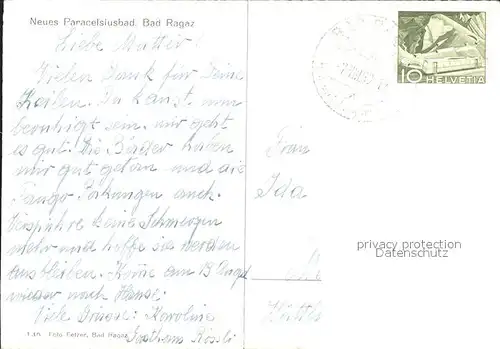 Neues Paracelsiusbad, Bad Ragaz
Liebe Mutter!
Vielen Dank für Deine
Zeilen. Du kanst nun
beruhigt sein, mir geht
es gut. Die Bäder haben
mir gut getan und die
Fango Packungen auch.
Verspühre keine Schmerzen
mehr und hoffe sie werden
ausbleiben. Kome am 15 Augu
wieder nach Hause.
Viele Grüsse: Karoline
Gasthaus Rössli
Foto Fetzer, Bad Ragaz
10 HELVETIA
Frau
Ida
privacy protection
Datenschutz